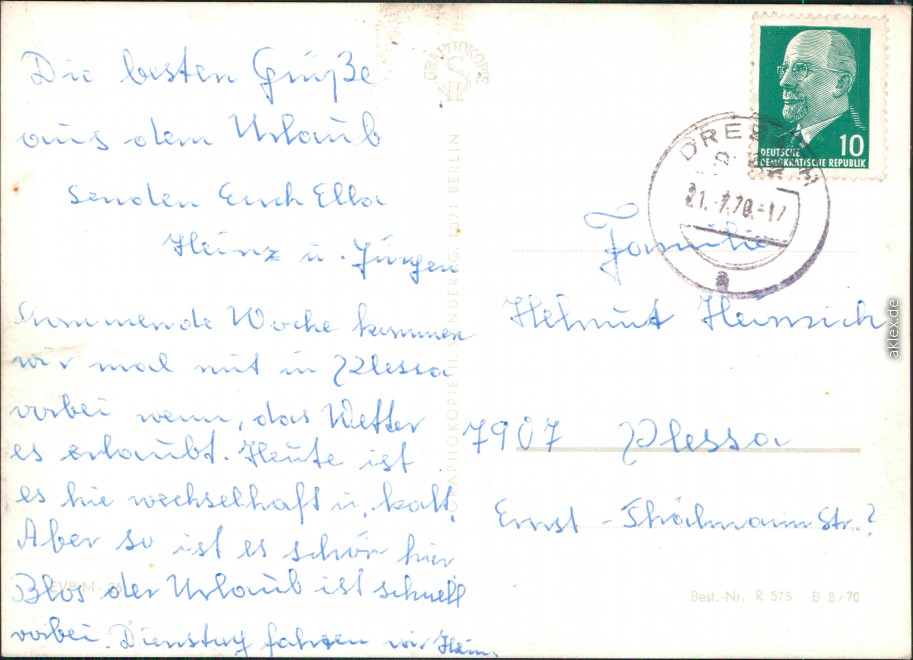 Die besten Grüße
aus dem Urlaub
senden Euch Ella
Heinz u. Jürgen
Kommende Woche kommen
wir mal mit in Plessa
vorbei wenn, das Wetter
es erlaubt. Heute ist
es hie wechselhaft u. kalt.
Aber so ist es schön hier
Blos der Urlaub ist schnell
vorbei. Dienstag fahren wir Heim.
GRAPHOKOPIE
GRAPHOKOPIE H. 1071 BERLIN
10
DEUTSCHE
DEMOKRATISCHE REPUBLIK
DRES
21.-7.70.-17
a
Familie
Helmut Heinrich
7907 Plessa
Ernst-Thälmann Str.?
EVP M
Best.-Nr. R 575 B 8/70
aklex.de